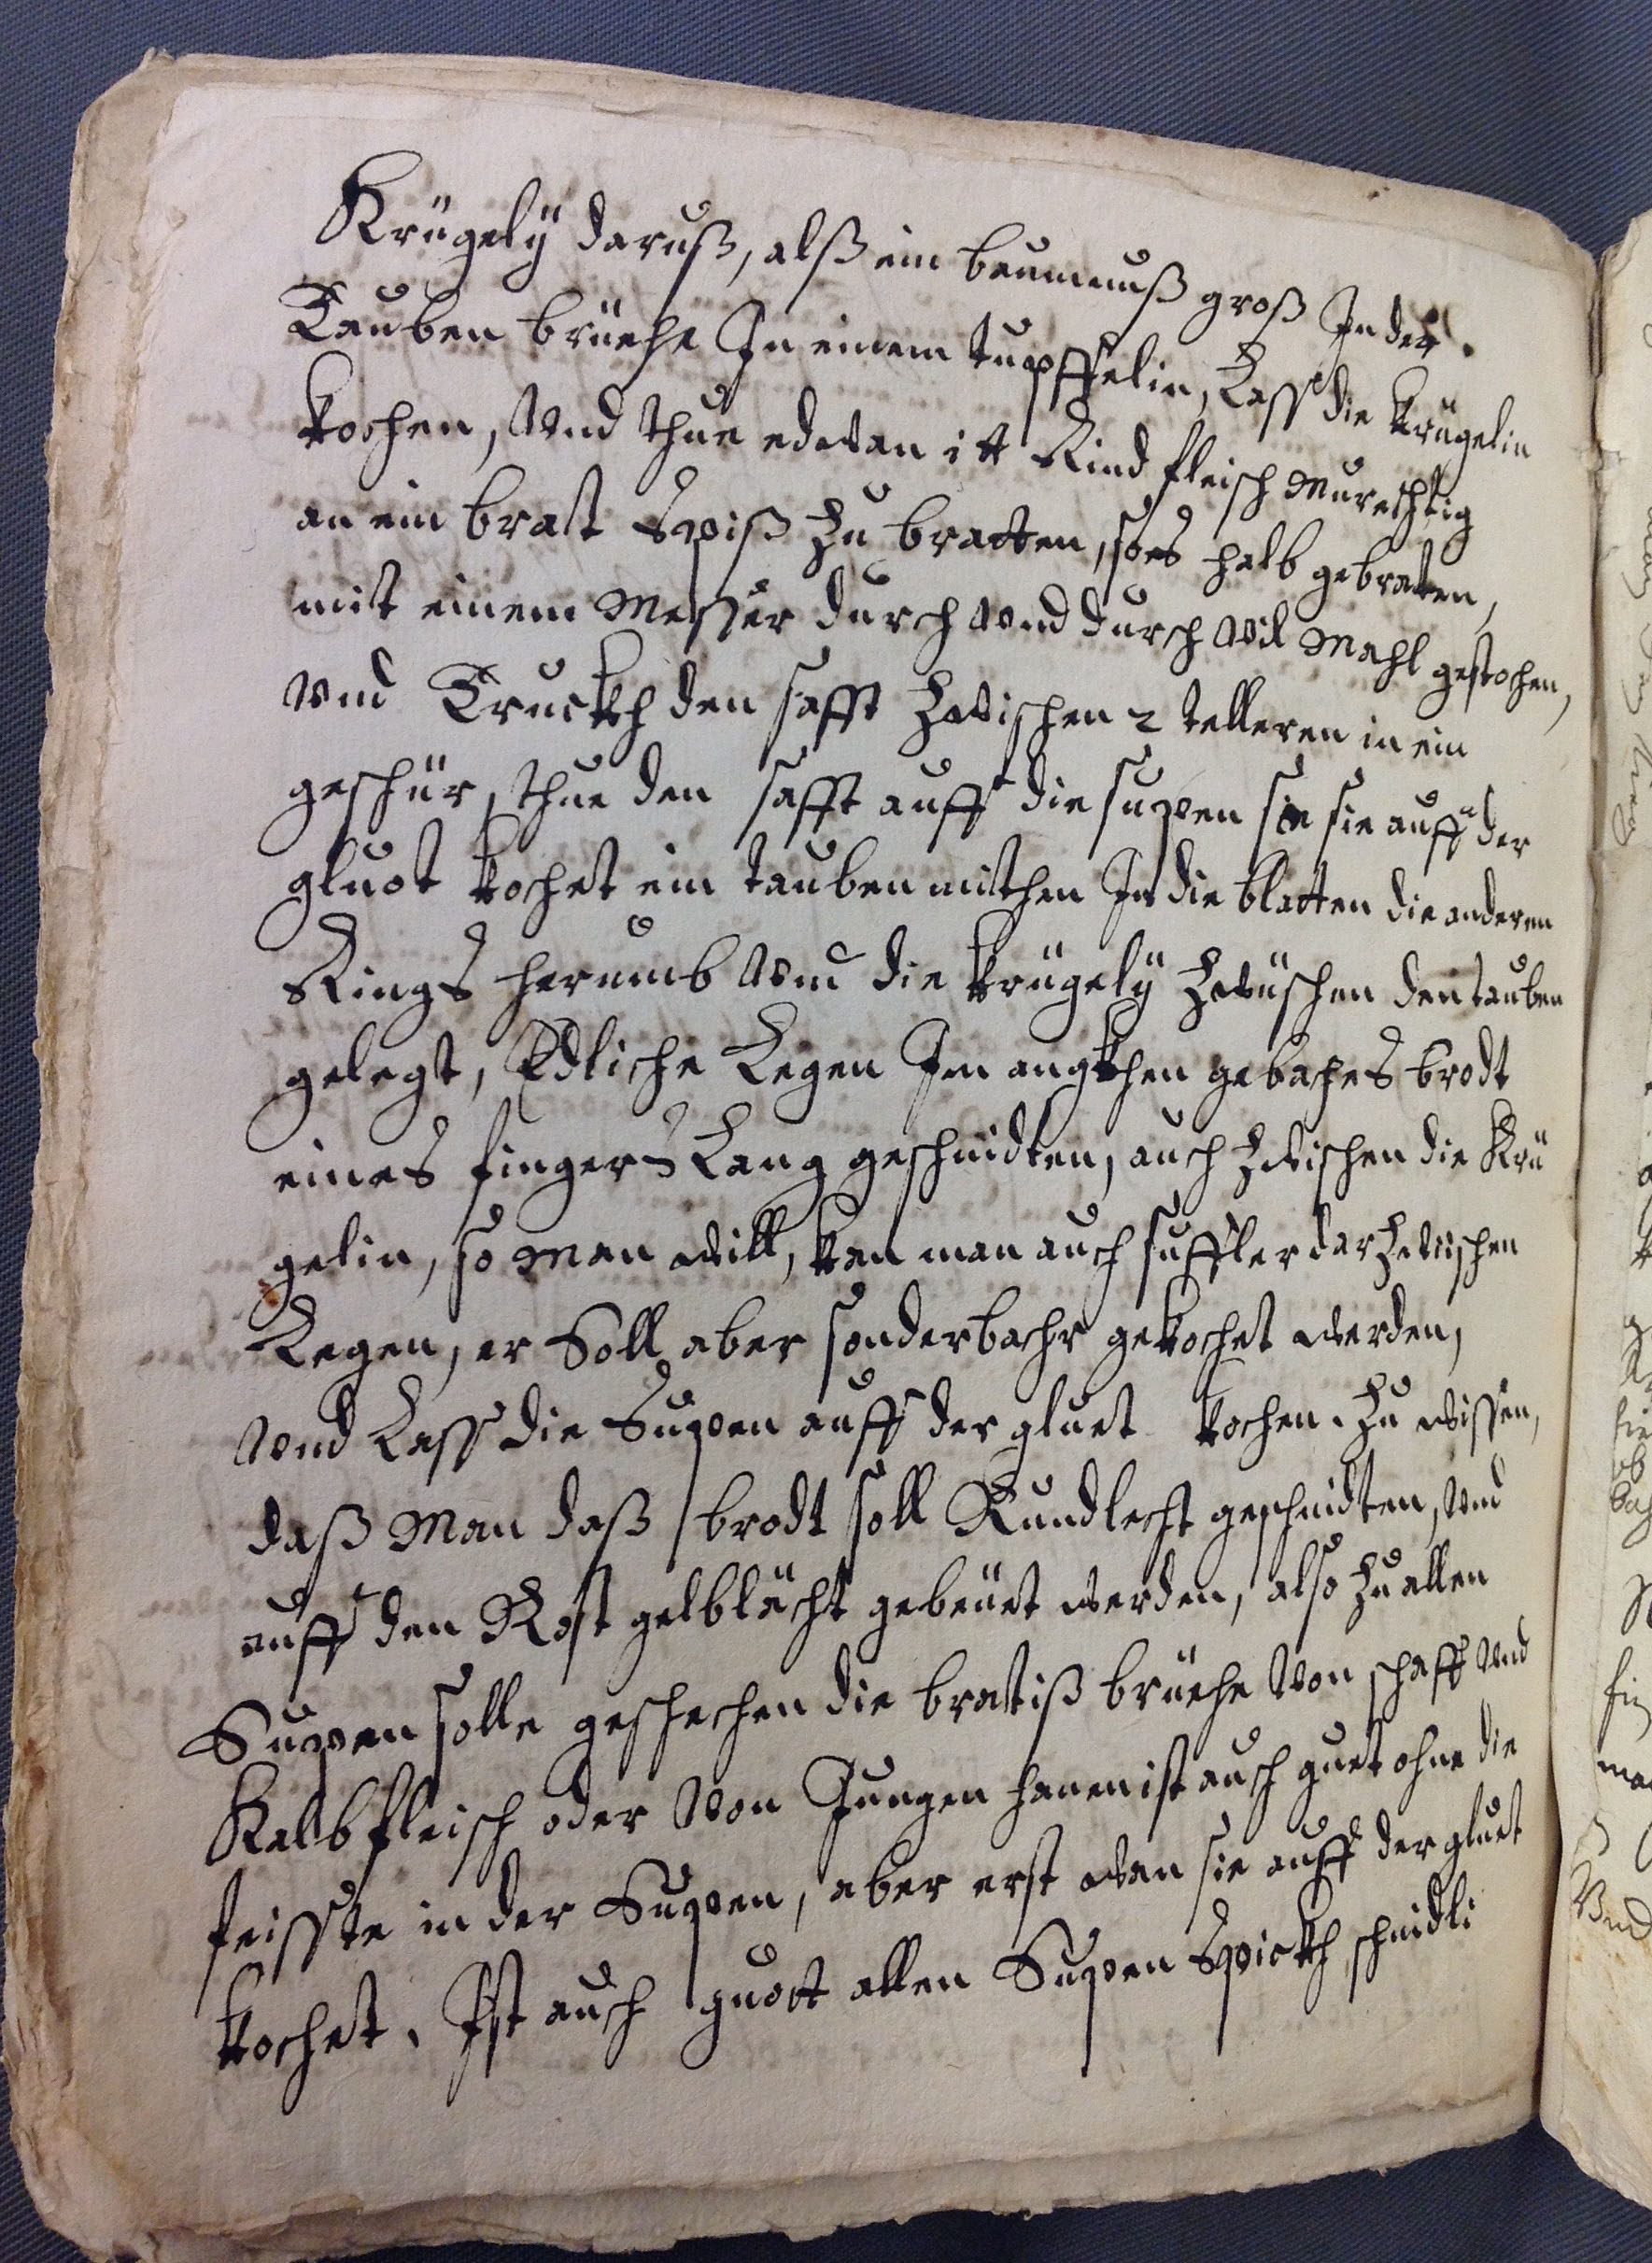 Krügelÿ daruß, alß ein baumnuß groß In der
Tauben brüehe In einem tüpffelin, Lass die krügelin
kochen, Vnd thue edwan 1 ℔ Rindfleisch Murechtig
an ein brat Spiß Zu bratten, so es halb gebraten,
mit einem Messer durch Vnd durch Vil Mahl gestochen,
Vnd Truckh den safft Zwischen 2 telleren in ein
geschür, thue den safft auff die supen sie auff der
gluot kochet ein tauben mitten In die blatten die anderen
Rings herumb Vnd die krügelÿ Zwüschen den tauben
gelegt, Edliche Legen Im angkhen gebaches brodt
eines fingers Lang geschnidten, auch Zwischen die Krü
gelin, so Man will, kan man auch suffler dar Zwischen
Legen, er Soll aber sonderbahr gekochet werden,
Vnd Lass die Supen auff der gluet kochen. Zu wissen,
daß Man daß brodt soll Rundlecht geschnidten, Vnd
auff den Rost gelblächt gebeüet werden, also Zu allen
Supen solle geschechen die bratiß brüehe Von schaff Vnd
Kalbfleisch oder Von Jungen hanen ist auch guet ohne die
feisste in der Supen, aber erst wan sie auff der gluet
kochet. Ist auch guott allen Supen Spickh schnidli